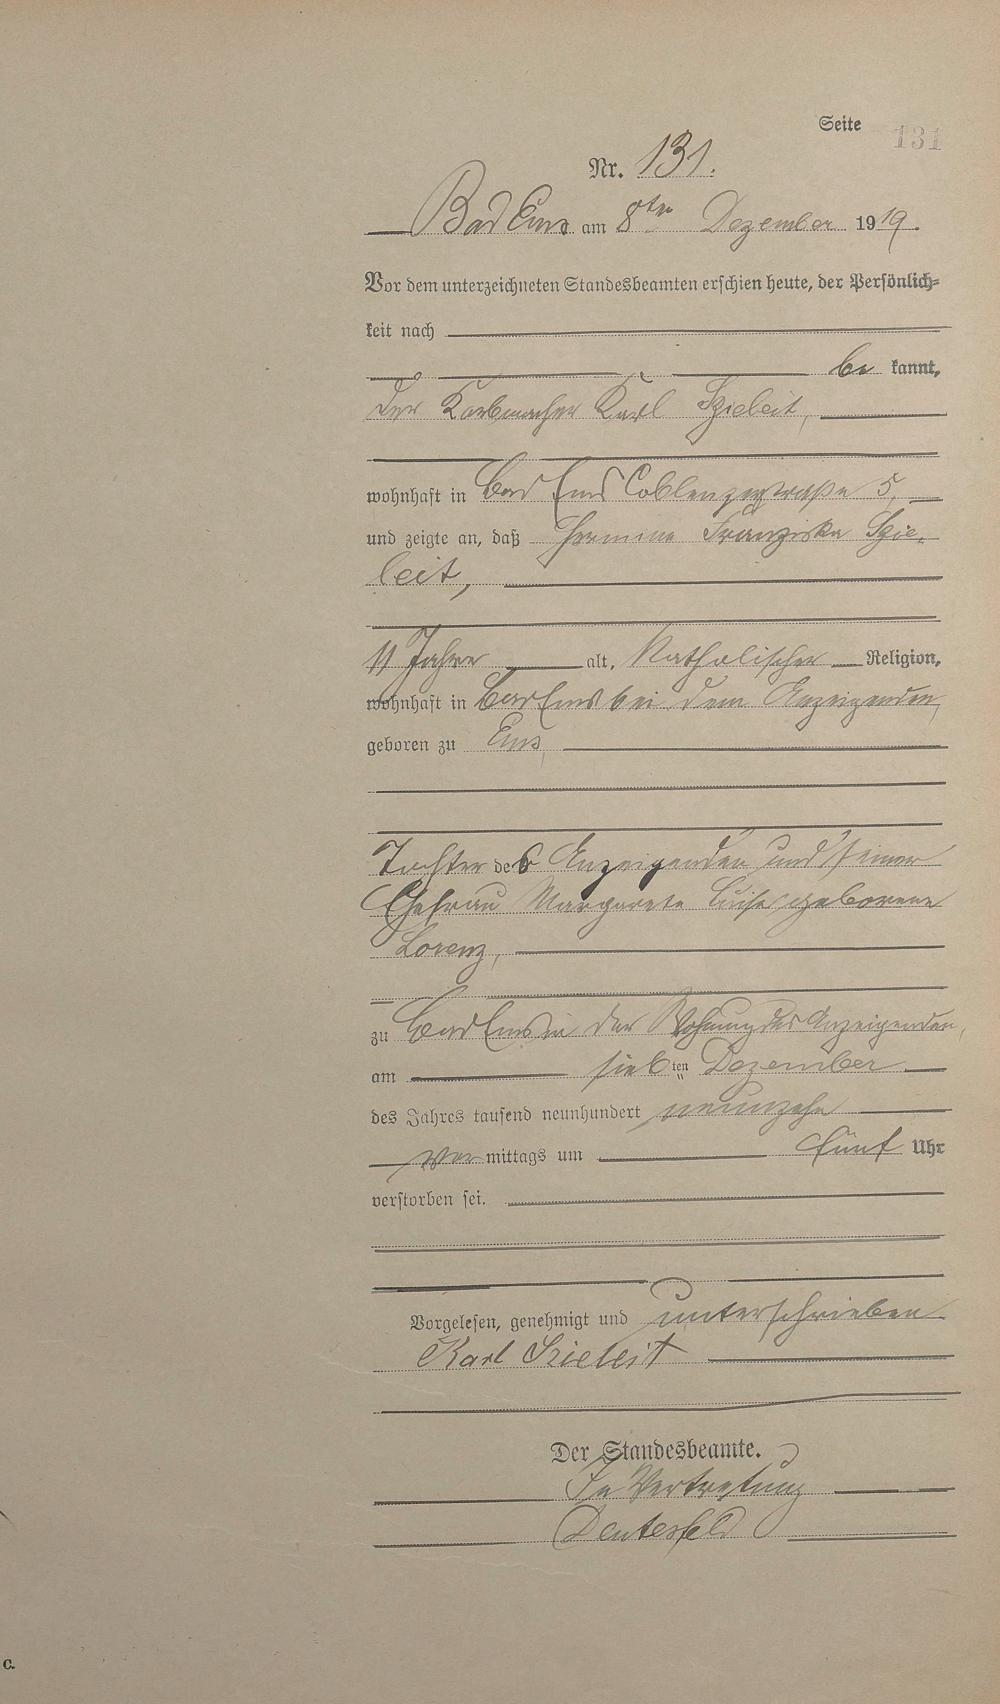 Seite 131
Nr. 131.
Bad Ems am 8ten Dezember 1919.
Vor dem unterzeichneten Standesbeamten erschien heute, der Persönlich-
keit nach
be kannt,
der Korbmacher Karl Szieleit,
wohnhaft in Bad Ems Coblenzerstraße 5,
und zeigte an, daß Hermine Franziska Szie-
leit,
11 Jahre alt, katholischer Religion,
wohnhaft in Bad Ems bei dem Anzeigenden,
geboren zu Ems,
Tochter des Anzeigenden und seiner
Ehefrau Margarete Luise geborene
Lorenz,
zu Bad Ems in der Wohnung des Anzeigenden,
am siebten Dezember
des Jahres tausend neunhundert neunzehn
Vor mittags um fünf Uhr
verstorben sei.
Vorgelesen, genehmigt und unterschrieben
Karl Szieleit
Der Standesbeamte.
In Vertretung
C.